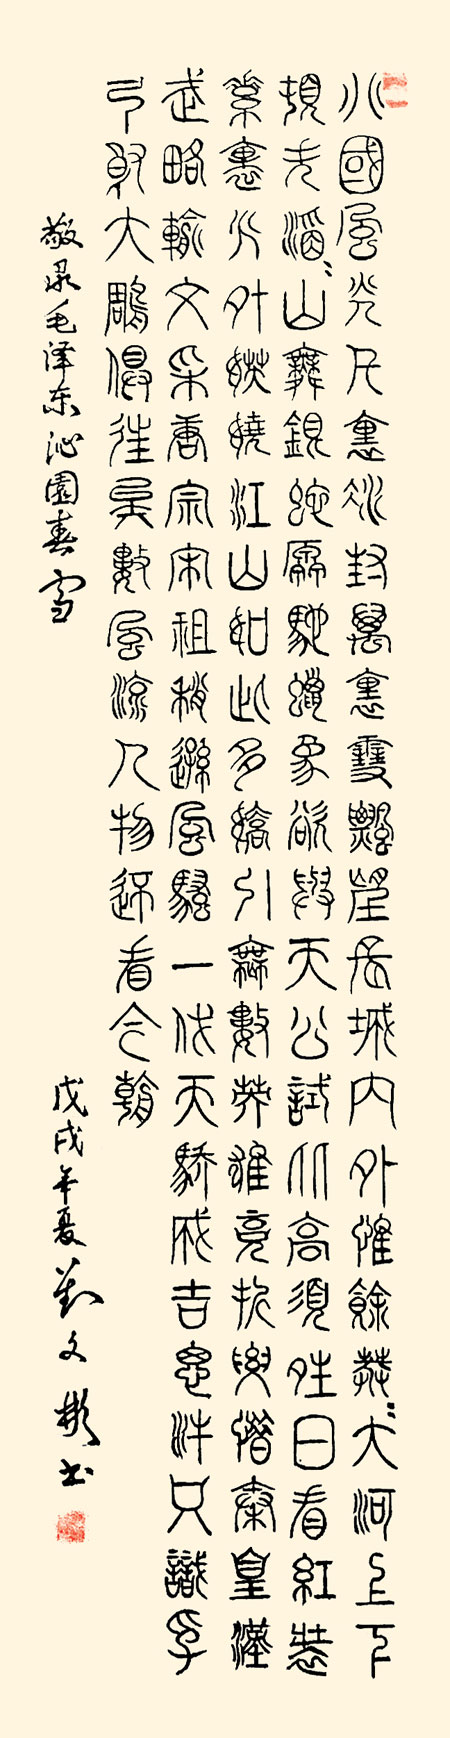 北國風光千裏冰封萬裏雪飄望長城內外惟餘莽々大河上下
頓失滔々山舞銀蛇原馳蠟象欲與天公試比高須晴日看紅裝
素裹分外妖嬈江山如此多嬌引無數英雄競折腰惜秦皇漢
武略輸文采唐宗宋祖稍遜風騷一代天驕成吉思汗只識彎
弓射大雕俱往矣數風流人物還看今朝
敬录毛泽东沁園春雪
戊戌年夏劉文彬书